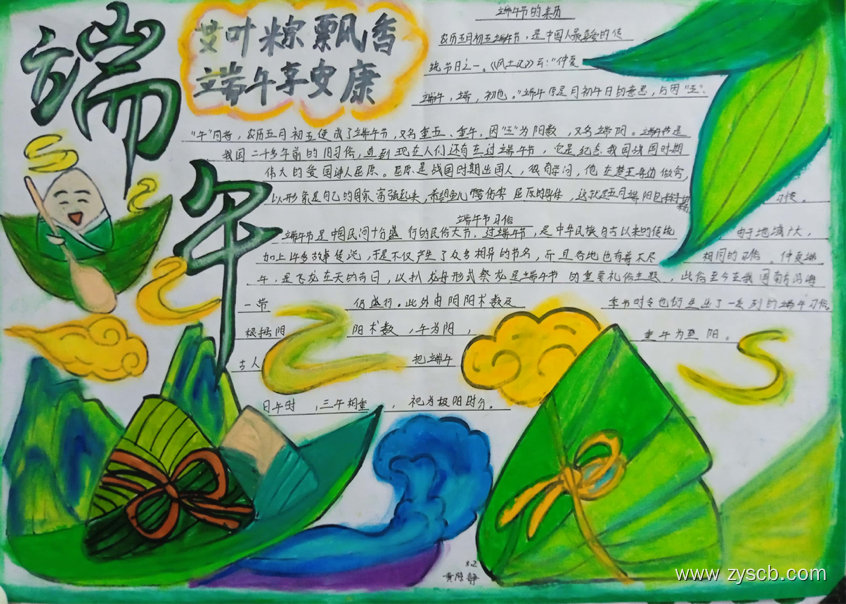 端午
艾叶粽飘香
端午享安康
端午节的来历
农历五月初五端午节，是中国人最重要的传
统节日之一。《风土记》云："仲夏
端午，端，初也。"端午原是月初午日的意思，与因"五"
"午"同音，农历五月初五便成了端午节，又名重五、重午。因"五"为阳数，又名端阳。端午节是
我国二千多年前的旧习俗，直到现在人们还在过端午节，它是纪念我国战国时期
伟大的爱国诗人屈原。屈原是战国时期出国人，很有学问，他在楚王身边做官，
的国家富强起来，屈原的身体，这就是五月端阳
端午节习俗
端午节是中国民间十分盛行的民俗大节，过端午节，是中华民族自古以来的传统 由于地域广大，
加上许多故事传说，于是不仅产生了众多相异的节名，而且各地也有着不尽 相同的习俗。仲夏端
午，是飞龙在天的吉日，以扒龙舟形式祭龙是端午节的重要礼俗主题，此俗至今在我国南方沿海
一带 仍盛行。此外由阴阳术数及 季节时令也衍生出了一系列的端午习俗，
根据阴 阳术数，午为阳， 重午为至阳。
古人 把端午
日午时，三午相重， 视为极阳时分。
3.2
www.zyscb.com